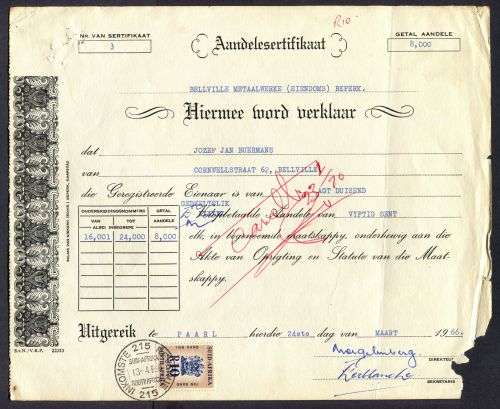 R10.
NR. VAN SERTIFIKAAT
3
Aandelesertifikaat
GETAL AANDELE
8,000
BELLVILLE METAALWERKE (EIENDOMS) BEPERK.
Hiermee word verklaar
dat JOZEF JAN BUERMANS
van CORNWELLSTRAAT 62, BELLVILLE
die Geregistreerde Eienaar is van AGT DUISEND
GEDEELTELIK
Volbetaalde Aandele van VYFTIG SENT
elk, in bogenoemde maatskappy, onderhewig aan die
Akte van Oprigting en Statute van die Maat-
skappy.
ONDERSKEIDINGSNOMMERS
GETAL
VAN
TOT
AANDELE
ALBEI INGESLOTE
16,001 24,000 8,000
Cancelled
23/
Uitgereik te PAARL hierdie 24ste dag van MAART 1966.
DIREKTEUR
SEKRETARIS
S.e.N./V.R.P. 22213
INKOMSTE 215
SUID-AFRIKA
215
R10